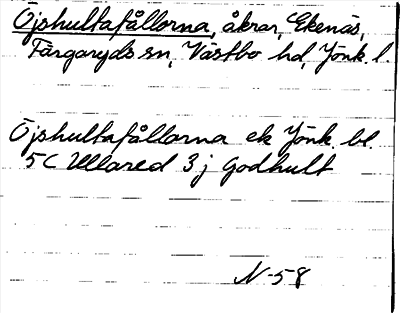 Öjshultafållorna, åkrar, Ekenäs,
Färgaryds sn, Västbo hd, Jönk. l.
Öjshultafållorna ek Jönk. bl.
5C Ullared 3 j Godhult
N-58